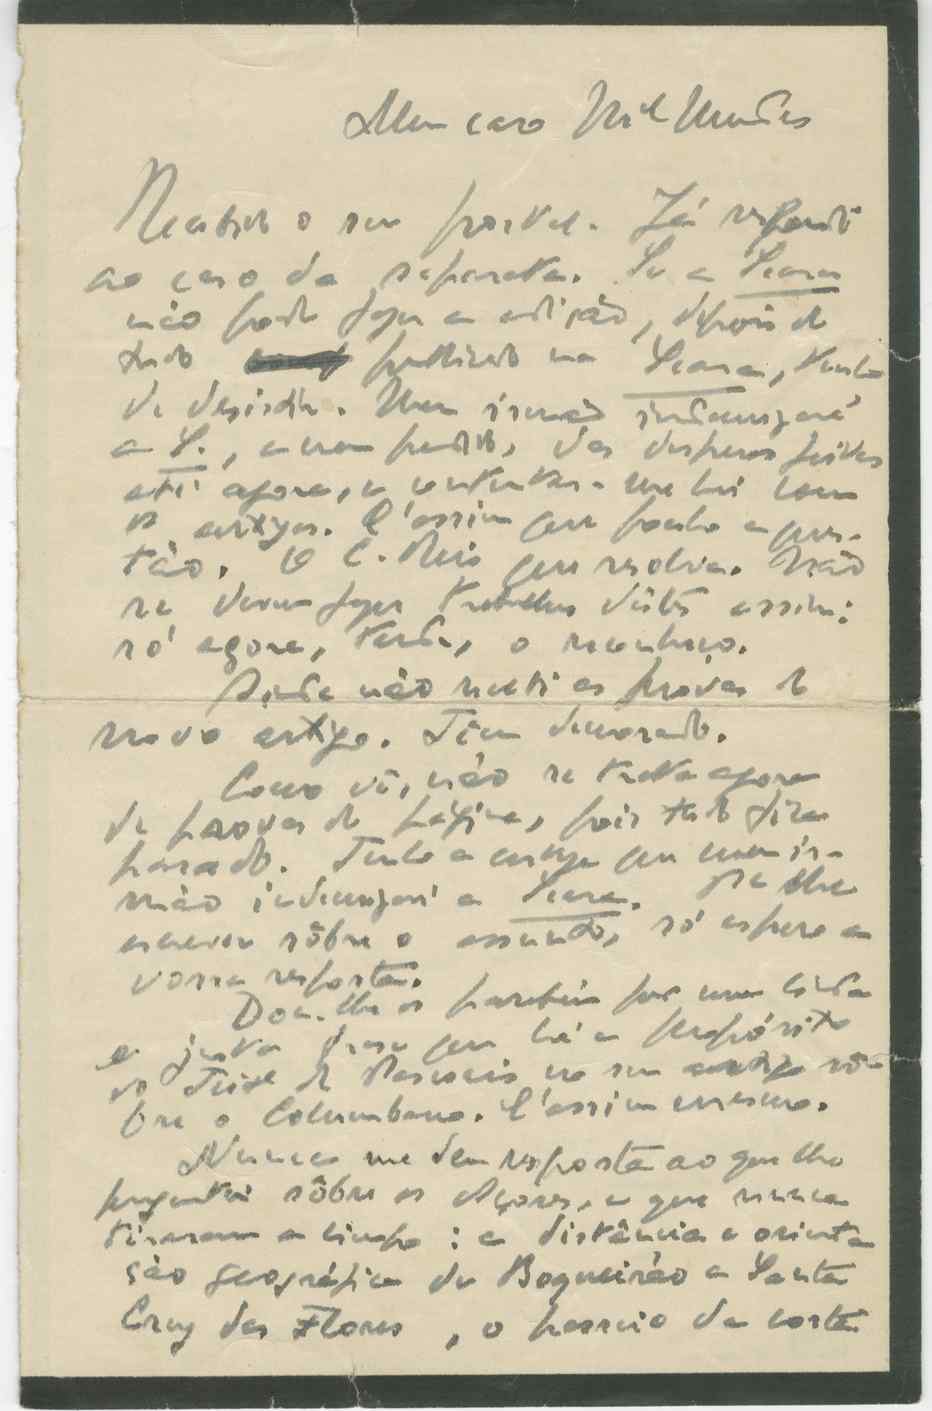 Meu caro
Recebido o seu postal. Já respondi
ao caso da separata. Se a Seara
não pode fazer a edição, depois de
tudo publicado na Seara, tenho
de desistir. Meu irmão indemnizará
a S., a meu pedido, das despesas feitas
até agora, e contentar-me-hei com
os artigos. É assim que ponho a ques-
tão. O C. Reis que resolva. Não
se devem fazer trabalhos dêstes assim:
só agora, tarde, o reconheço.
Ainda não recebi as provas do
novo artigo. Têm demorado.
Como vê, não se trata agora
de provas de página, pois tudo fica
parado. Tenho a certeza que meu ir-
mão indemnizará a Seara. Se lhe
escrevo sôbre o assunto, só espero a
vossa resposta.
Dou-lhe os parabéns por uma linda
e justa frase que há a propósito
do de Pascoais no seu artigo sô-
bre o Columbano. É assim mesmo.
Nunca me deu resposta ao que lhe
perguntei sôbre os Açores, e que nunca
tiraram a limpo: a distância e orienta
ção geográfica do Boqueirão a Santa
Cruz das Flores, o passeio da costa